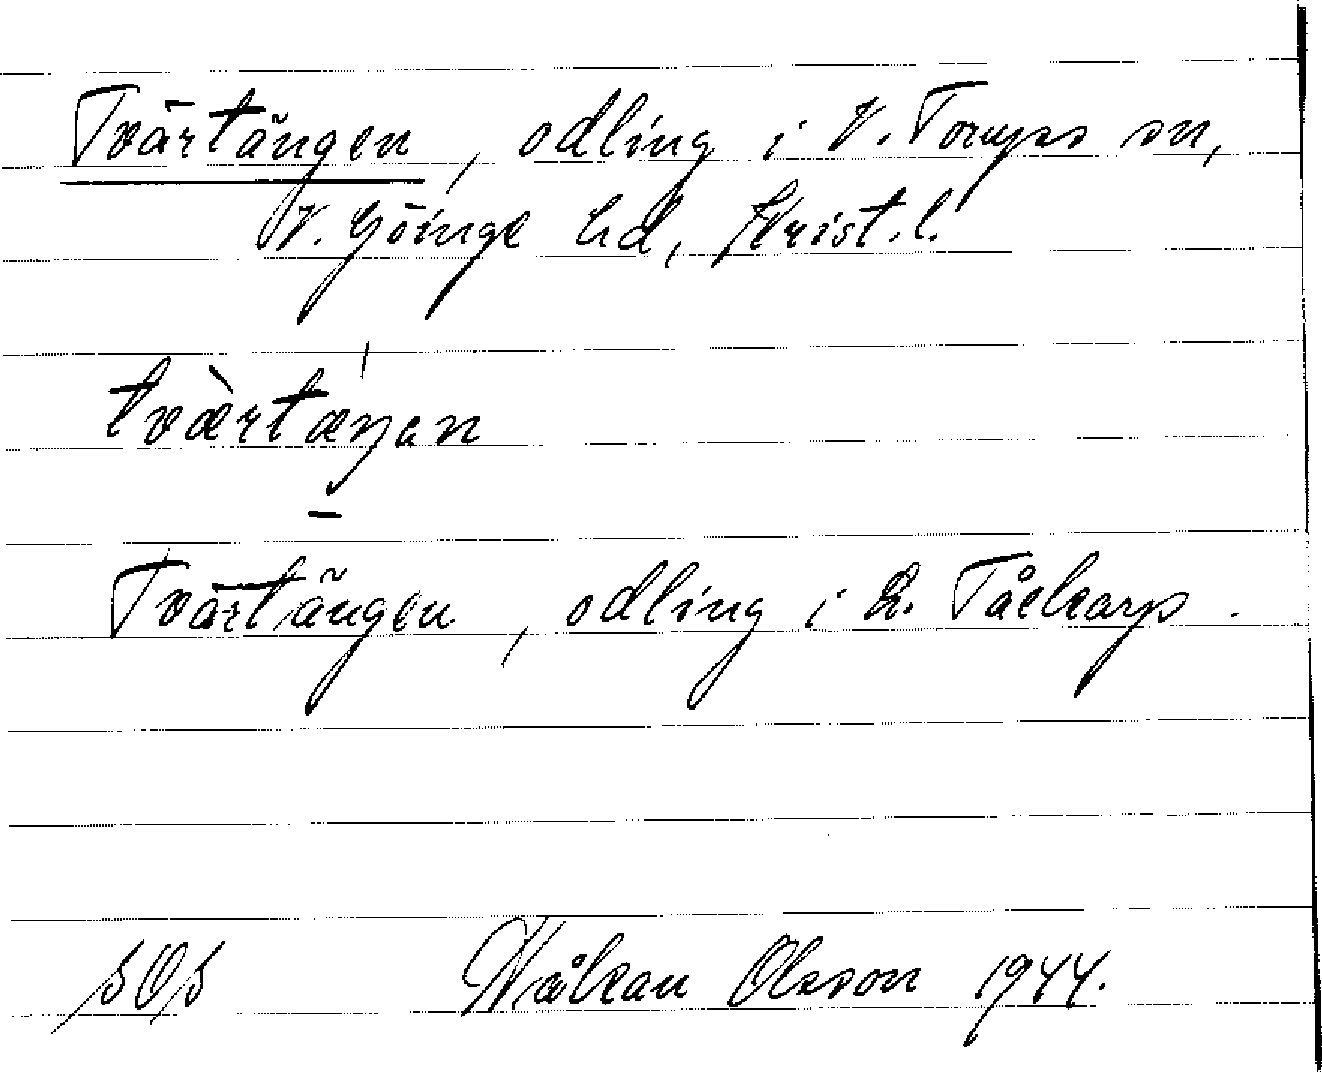 Tvärtängen, odling i V. Torups sn,
V. Göinge hd, Krist. l.
tvàrtæŋan
Tvärtängen, odling i L. Tåckarp.
SOS Håkan Olsson 1944.